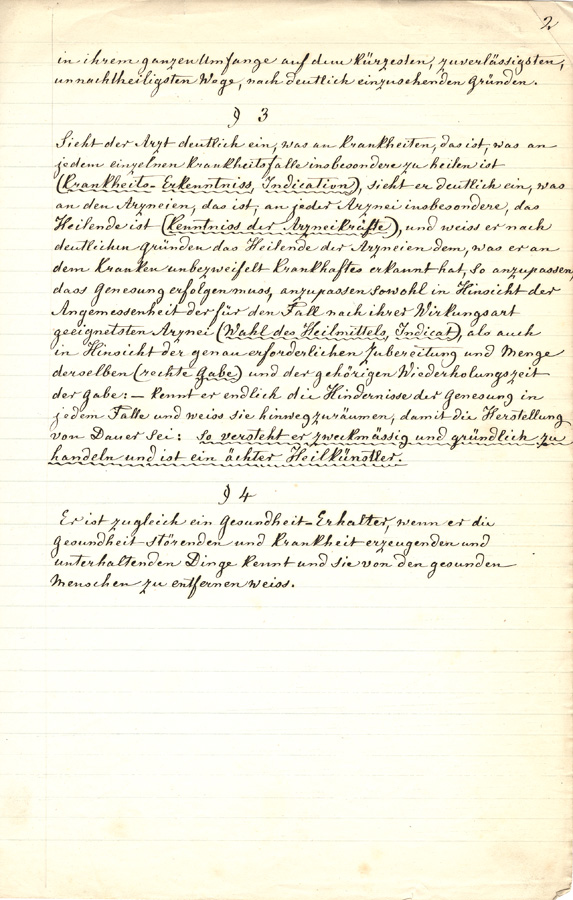 2.
in ihrem ganzen Umfange auf dem kürzesten, zuverlässigsten,
unnachtheiligsten Wege, nach deutlich einzusehenden Gründen.
§ 3
Sieht der Arzt deutlich ein, was an Krankheiten, das ist, was an
jedem einzelnen Krankheitsfalle insbesondere zu heilen ist
(Krankheits-Erkenntniss, Indication), sieht er deutlich ein, was
an den Arzneien, das ist, an jeder Arznei insbesondere, das
Heilende ist (Kenntniss der Arzneikräfte), und weiss er nach
deutlichen Gründen das Heilende der Arzneien dem, was er an
dem Kranken unbezweifelt Krankhaftes erkannt hat, so anzupassen,
dass Genesung erfolgen muss, anzupassen sowohl in Hinsicht der
Angemessenheit der für den Fall nach ihrer Wirkungsart
geeignetsten Arznei (Wahl des Heilmittels, Indicat), als auch
in Hinsicht der genau erforderlichen Zubereitung und Menge
derselben (rechte Gabe) und der gehörigen Wiederholungszeit
der Gabe: – kennt er endlich die Hindernisse der Genesung in
jedem Falle und weiss sie hinwegzuräumen, damit die Herstellung
von Dauer sei: so versteht er zweckmässig und gründlich zu
handeln und ist ein ächter Heilkünstler.
§ 4
Er ist zugleich ein Gesundheit-Erhalter, wenn er die
Gesundheit störenden und Krankheit erzeugenden und
unterhaltenden Dinge kennt und sie von den gesunden
Menschen zu entfernen weiss.